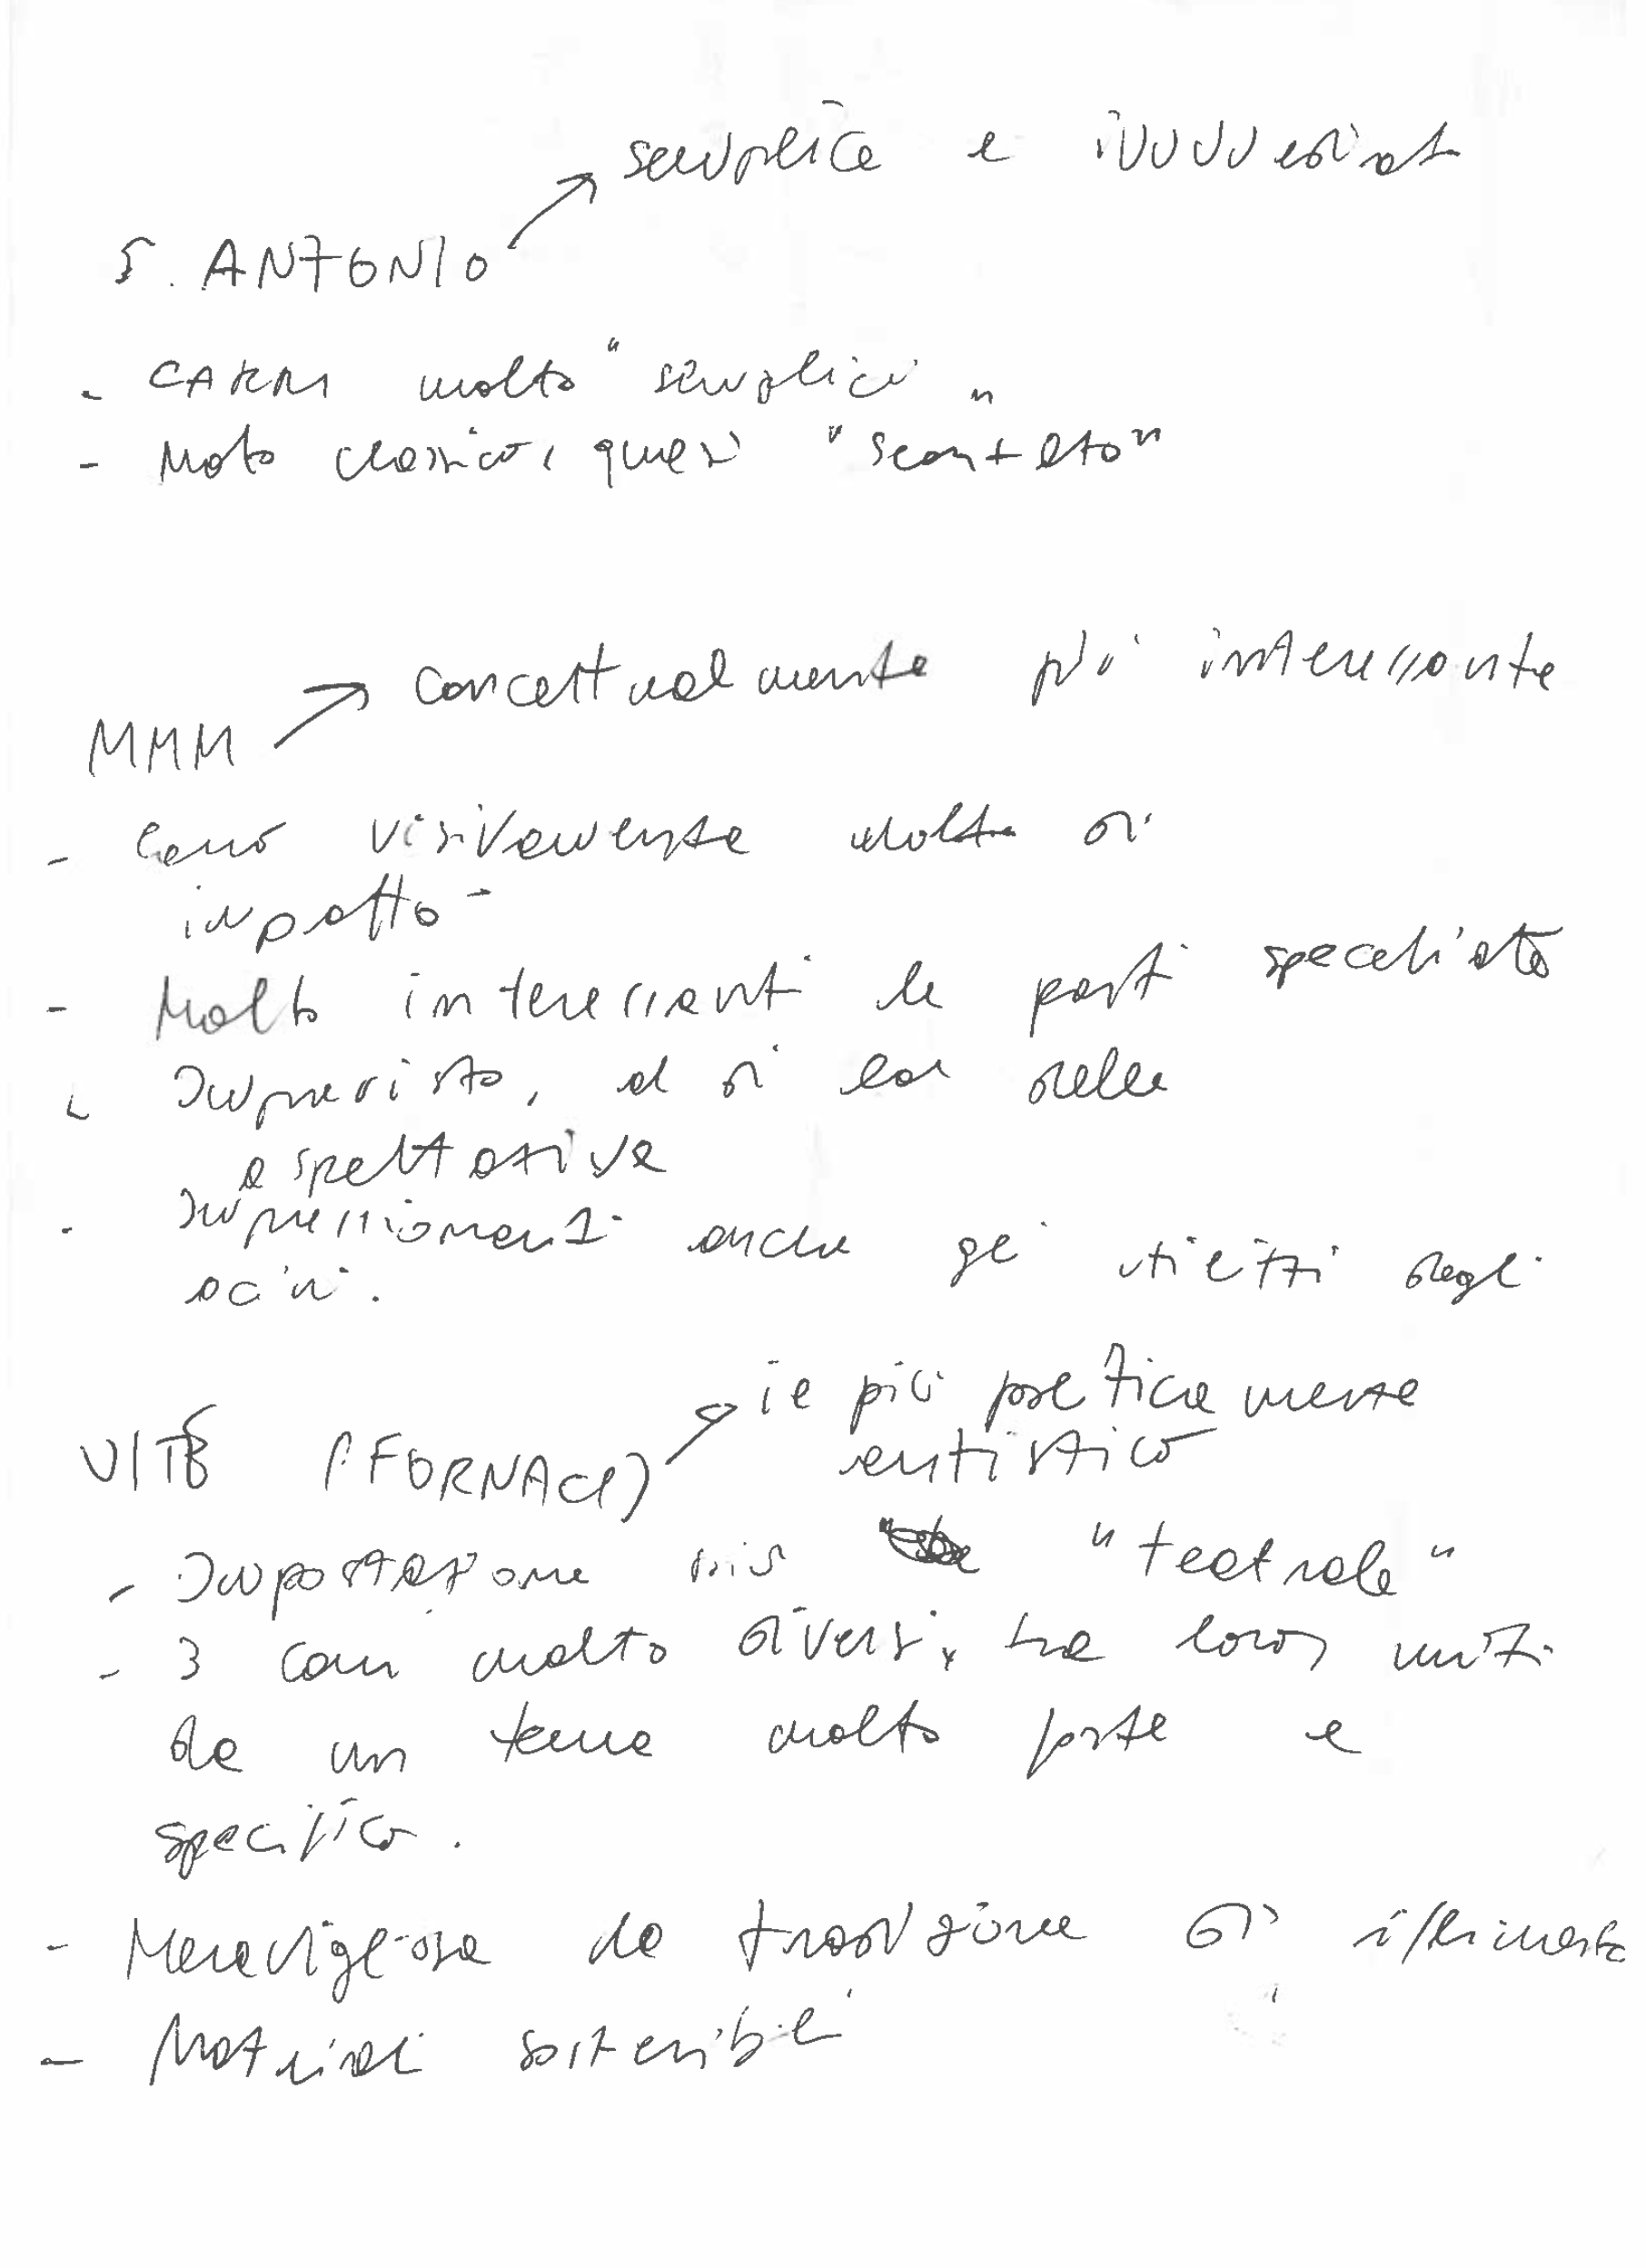 semplice e immediato
S. ANTONIO
- CARRI molto "semplici"
- Molto classico, quasi "scontato"
concettualmente più interessante
MMM
- Carro visivamente molto di
impatto
- Molto interessanti le parti specchiate
- Imprevisto, al di là delle
aspettative
- Impressionanti anche gli utilizzi degli
il più poeticamente
VITE (FORNACI)
artistico
- Impostazione più "teatrale"
- 3 carri molto diversi, tra loro, uniti
da un tema molto forte e
specifico.
- Meravigliosa la tradizione di riferimento
- Materiali sostenibili